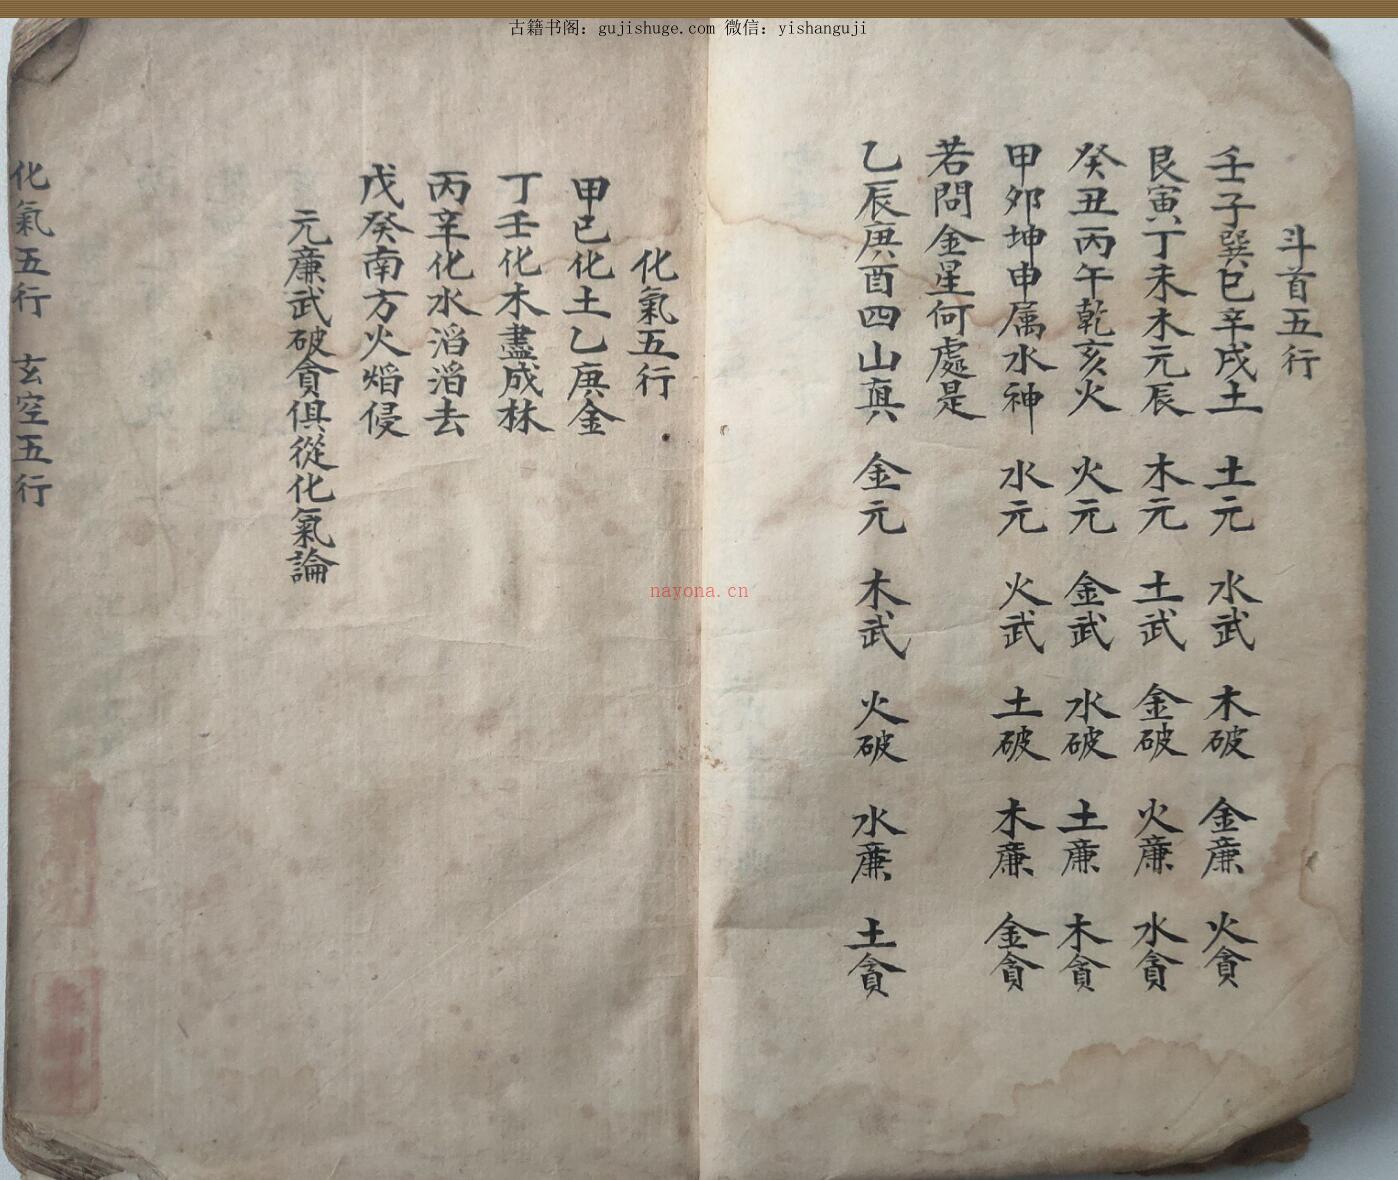 古籍书阁：gujishuge.com 微信：yishanguji
斗首五行
壬子巽巳辛戌土 土元 水武 木破 金廉 火貪
艮寅丁未木元辰 木元 土武 金破 火廉 水貪
癸丑丙午乾亥火 火元 金武 水破 土廉 木貪
甲夘坤申属水神 水元 火武 土破 木廉 金貪
若問金星何處是
乙辰庚酉四山真 金元 木武 火破 水廉 土貪
化氣五行
甲巳化土乙庚金
丁壬化木盡成林
丙辛化水滔滔去
戊癸南方火熖侵
元廉武破貪俱從化氣論
化氣五行 玄空五行
nayona.cn